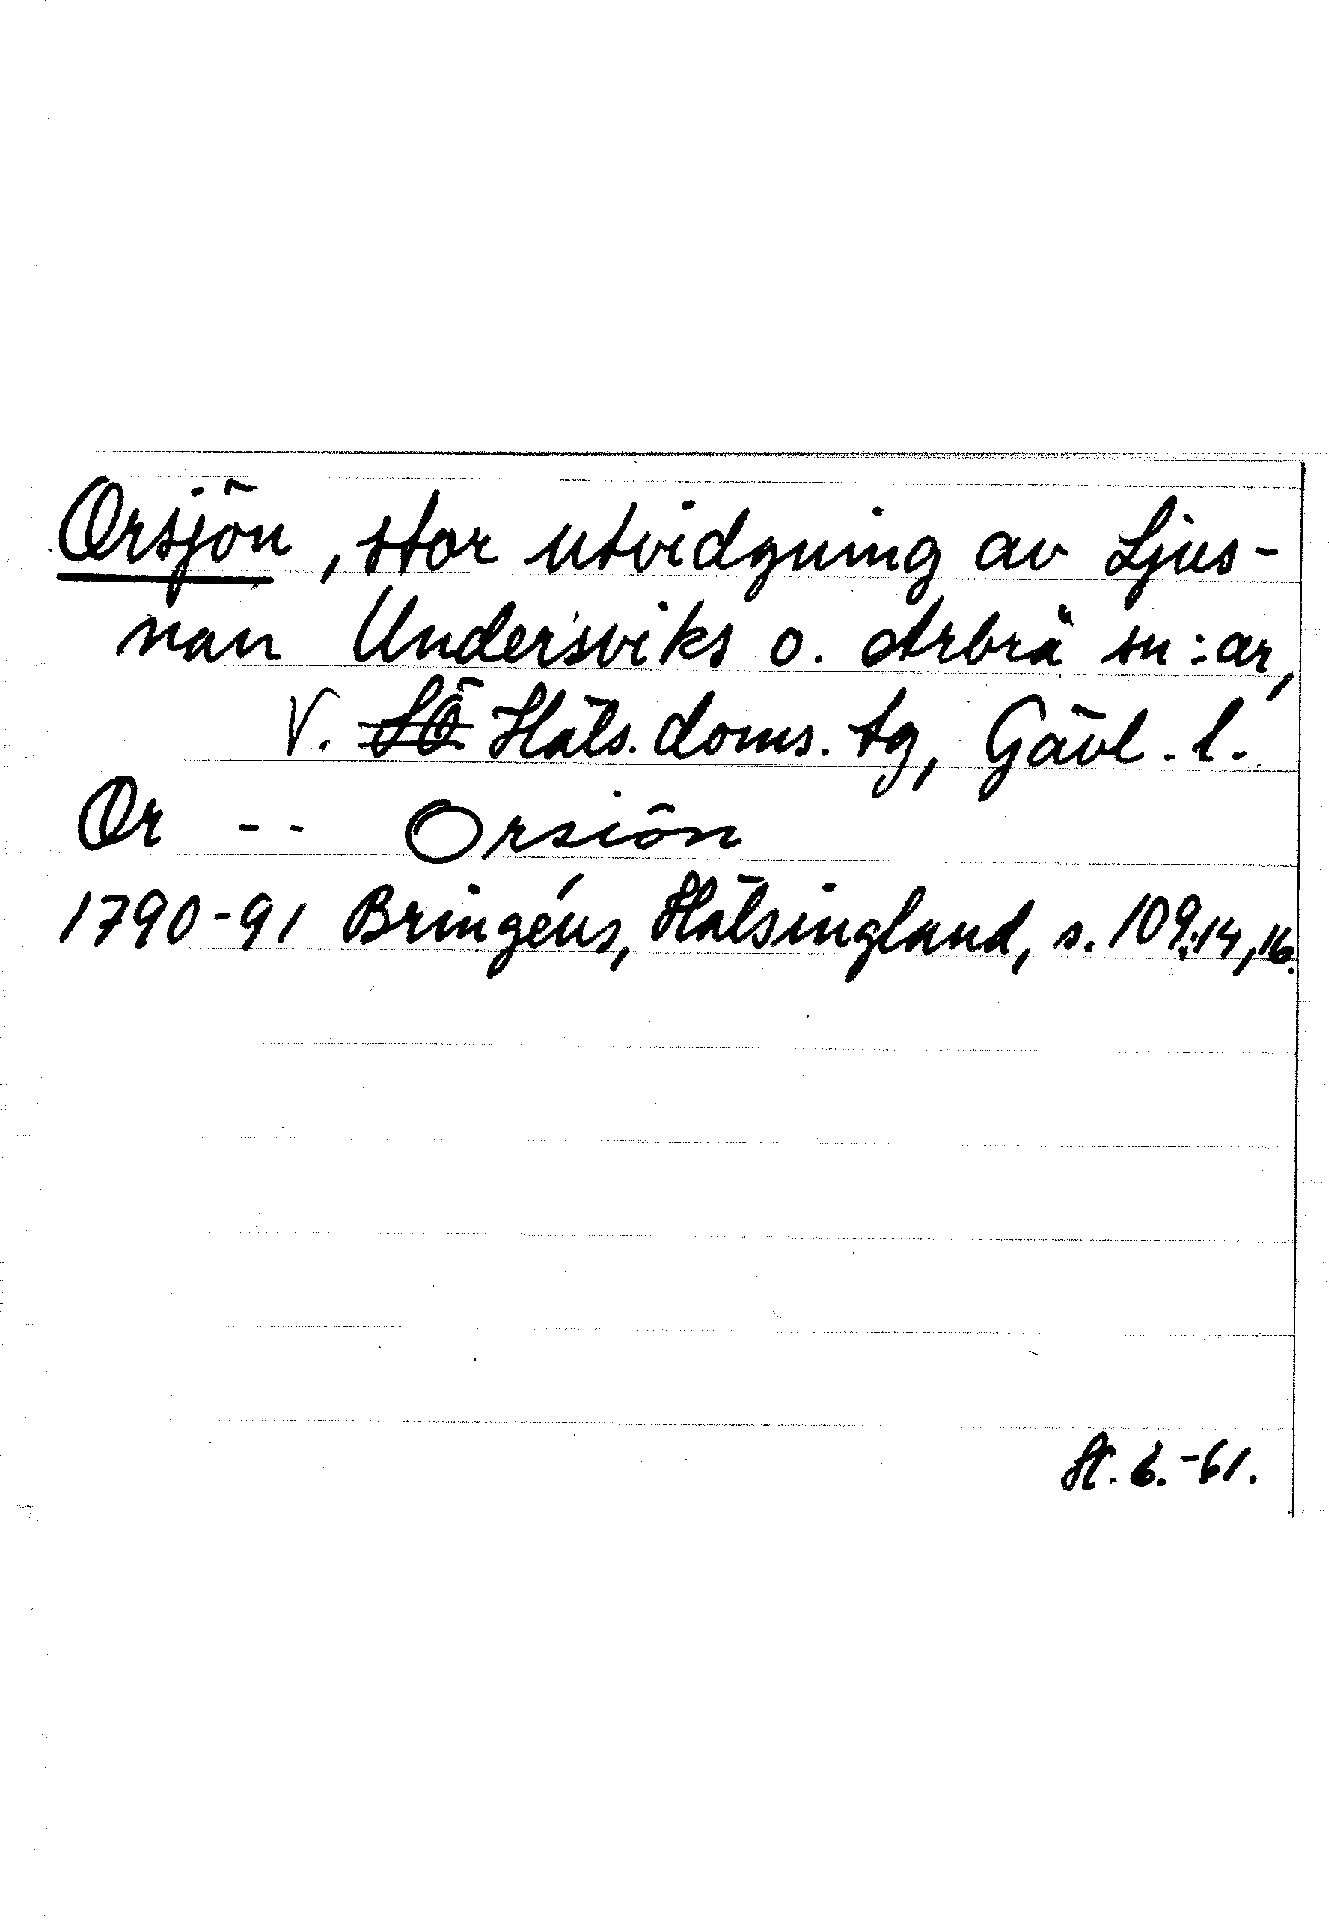 Orsjön, stor utvidgning av Ljus-
nan Undersviks o. Arbrå sn:ar,
V. SÖ Häls. doms. tg, Gävl. l.
Or -- Orsiön
1790-91 Bringéus, Hälsingland, s. 109:14, 16.
St. 6. -61.